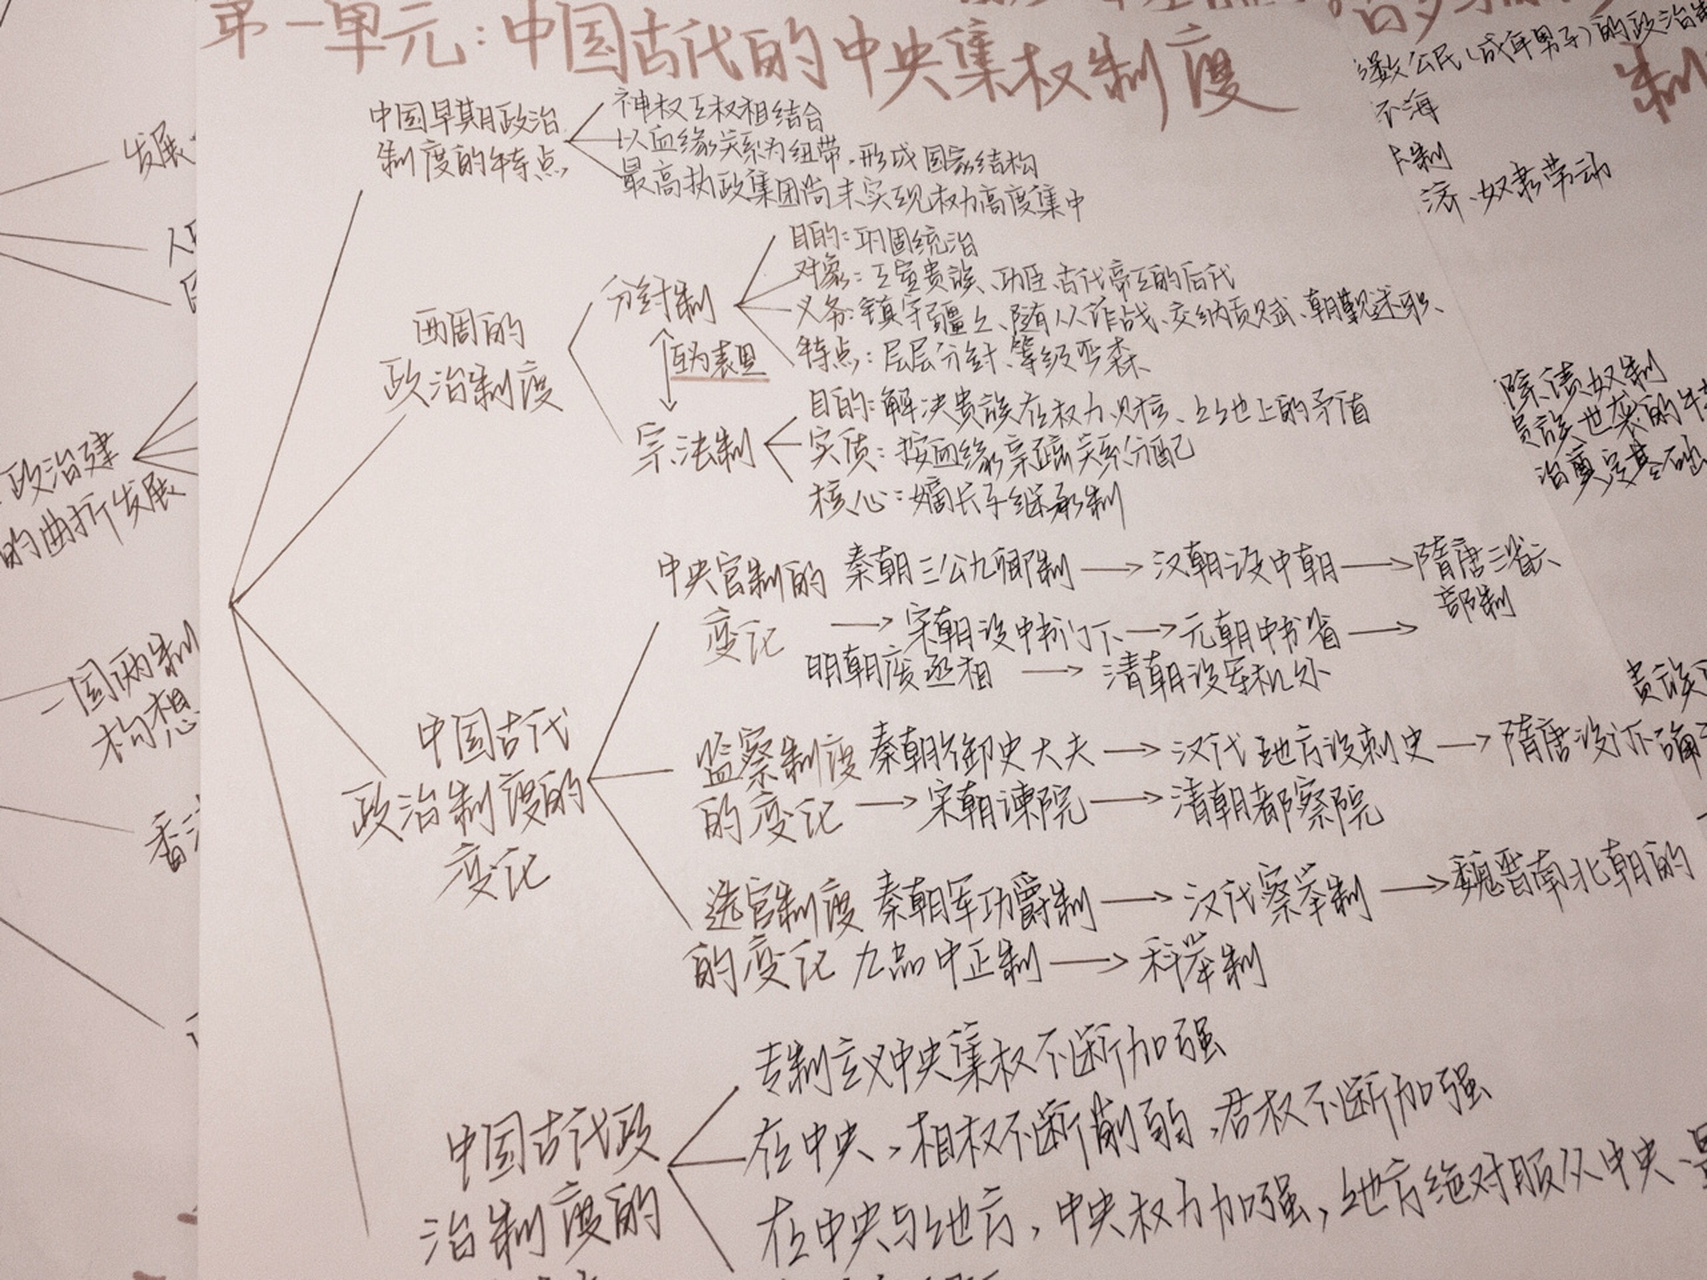 第一单元：中国古代的中央集权制度
中国早期政治
制度的特点
神权王权相结合
以血缘关系为纽带，形成国家结构
最高执政集团尚未实现权力高度集中
西周的
政治制度
分封制
目的：巩固统治
对象：王室贵族、功臣、古代帝王的后代
义务：镇守疆土、随从作战、交纳贡赋、朝觐述职、
特点：层层分封、等级森严
互为表里
宗法制
目的：解决贵族在权力、财产、土地上的矛盾
实质：按血缘亲疏关系分配
核心：嫡长子继承制
中国古代
政治制度的
变化
中央官制的
变化
秦朝三公九卿制→汉朝设中朝→隋唐三省六
部制
→宋朝设中书门下→元朝中书省→
明朝废丞相→清朝设军机处
监察制度
的变化
秦朝御史大夫→汉代地方设刺史→隋唐设
→宋朝谏院→清朝都察院
选官制度
的变化
秦朝军功爵制→汉代察举制→魏晋南北朝的
九品中正制→科举制
中国古代政
治制度的
专制主义中央集权不断加强
在中央，相权不断削弱，君权不断加强
在中央与地方，中央权力加强，地方绝对服从中央、
发展
政治建
的曲折发展
一国两制
构想
数公民（成年男子）的政治
制
济、奴隶劳动
除债奴制
贵族世袭的
治奠定基础
贵族